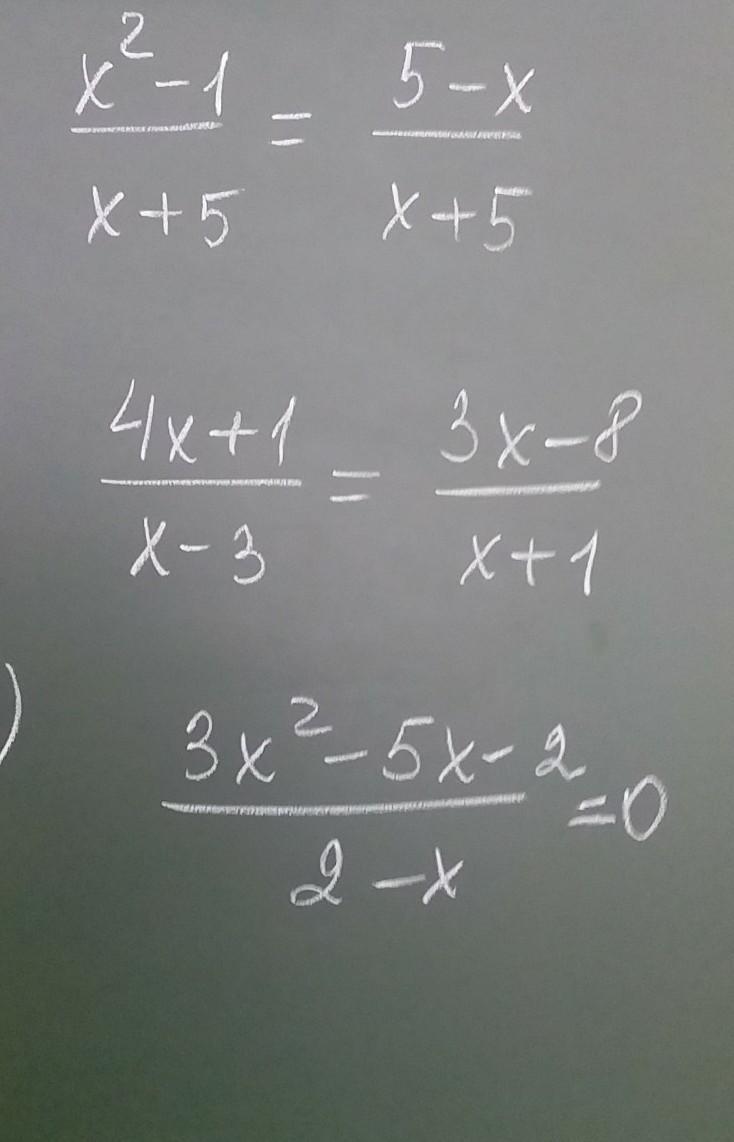 x² - 1 / x + 5 = 5 - x / x + 5
4x + 1 / x - 3 = 3x - 8 / x + 1
) 3x² - 5x - 2 / 2 - x = 0